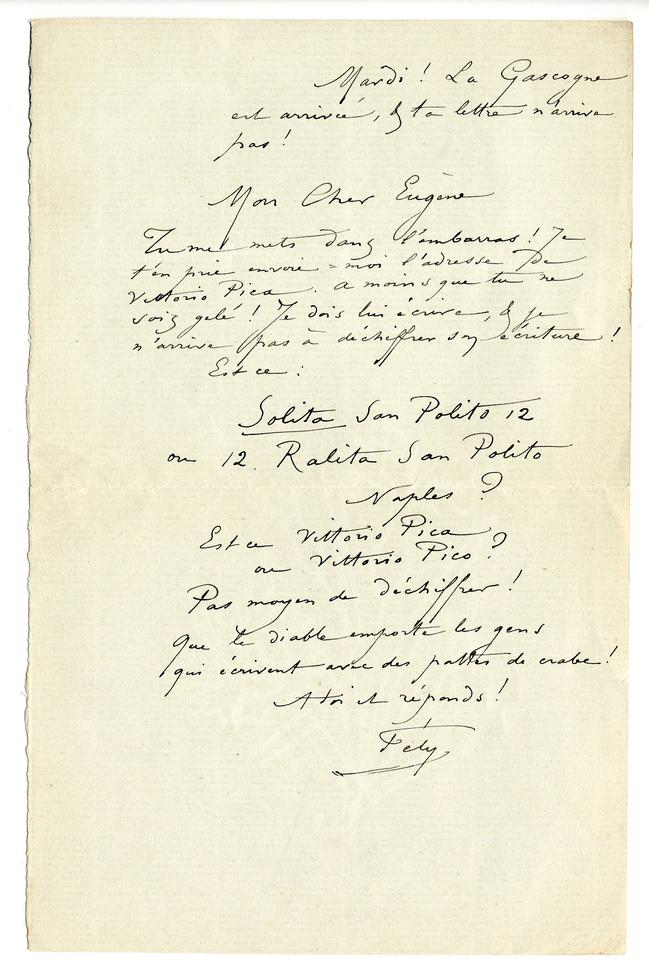 Mardi ! La Gascogne
est arrivée, & ta lettre n'arrive
pas !
Mon Cher Eugène
Tu me mets dans l'embarras ! Je
t'en prie envoie-moi l'adresse de
Vittorio Pica. a moins que tu ne
sois gelé ! Je dois lui écrire, & je
n'arrive pas à déchiffrer son écriture !
Est ce :
Solita San Polito 12
ou 12. Ralita San Polito
Naples ?
Est ce Vittorio Pica
ou Vittorio Pico ?
Pas moyen de déchiffrer !
Que le diable emporte les gens
qui écrivent avec des pattes de crabe !
A toi et réponds !
Fély